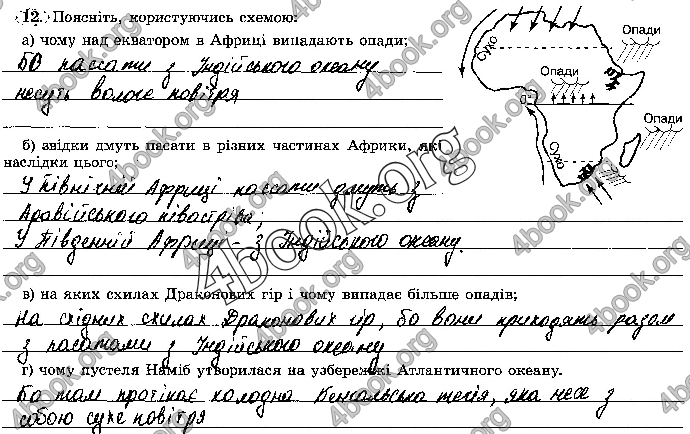 12. Поясніть, користуючись схемою:
а) чому над екватором в Африці випадають опади;
Бо пассати з Індійського океану
несуть вологе повітря
б) звідки дмуть пасати в різних частинах Африки, які
наслідки цього;
У Північній Африці пассати дмуть з
Аравійського півострова;
У Південній Африці - з Індійського океану.
в) на яких схилах Драконових гір і чому випадає більше опадів;
На східних схилах Драконових гір, бо вони приходять разом
з пасатами з Індійського океану
г) чому пустеля Наміб утворилася на узбережжі Атлантичного океану.
Бо там протікає холодна Бенгальська течія, яка несе з
собою сухе повітря
Сухо
Опади
Опади
0°
Опади
Сухо
4book.org